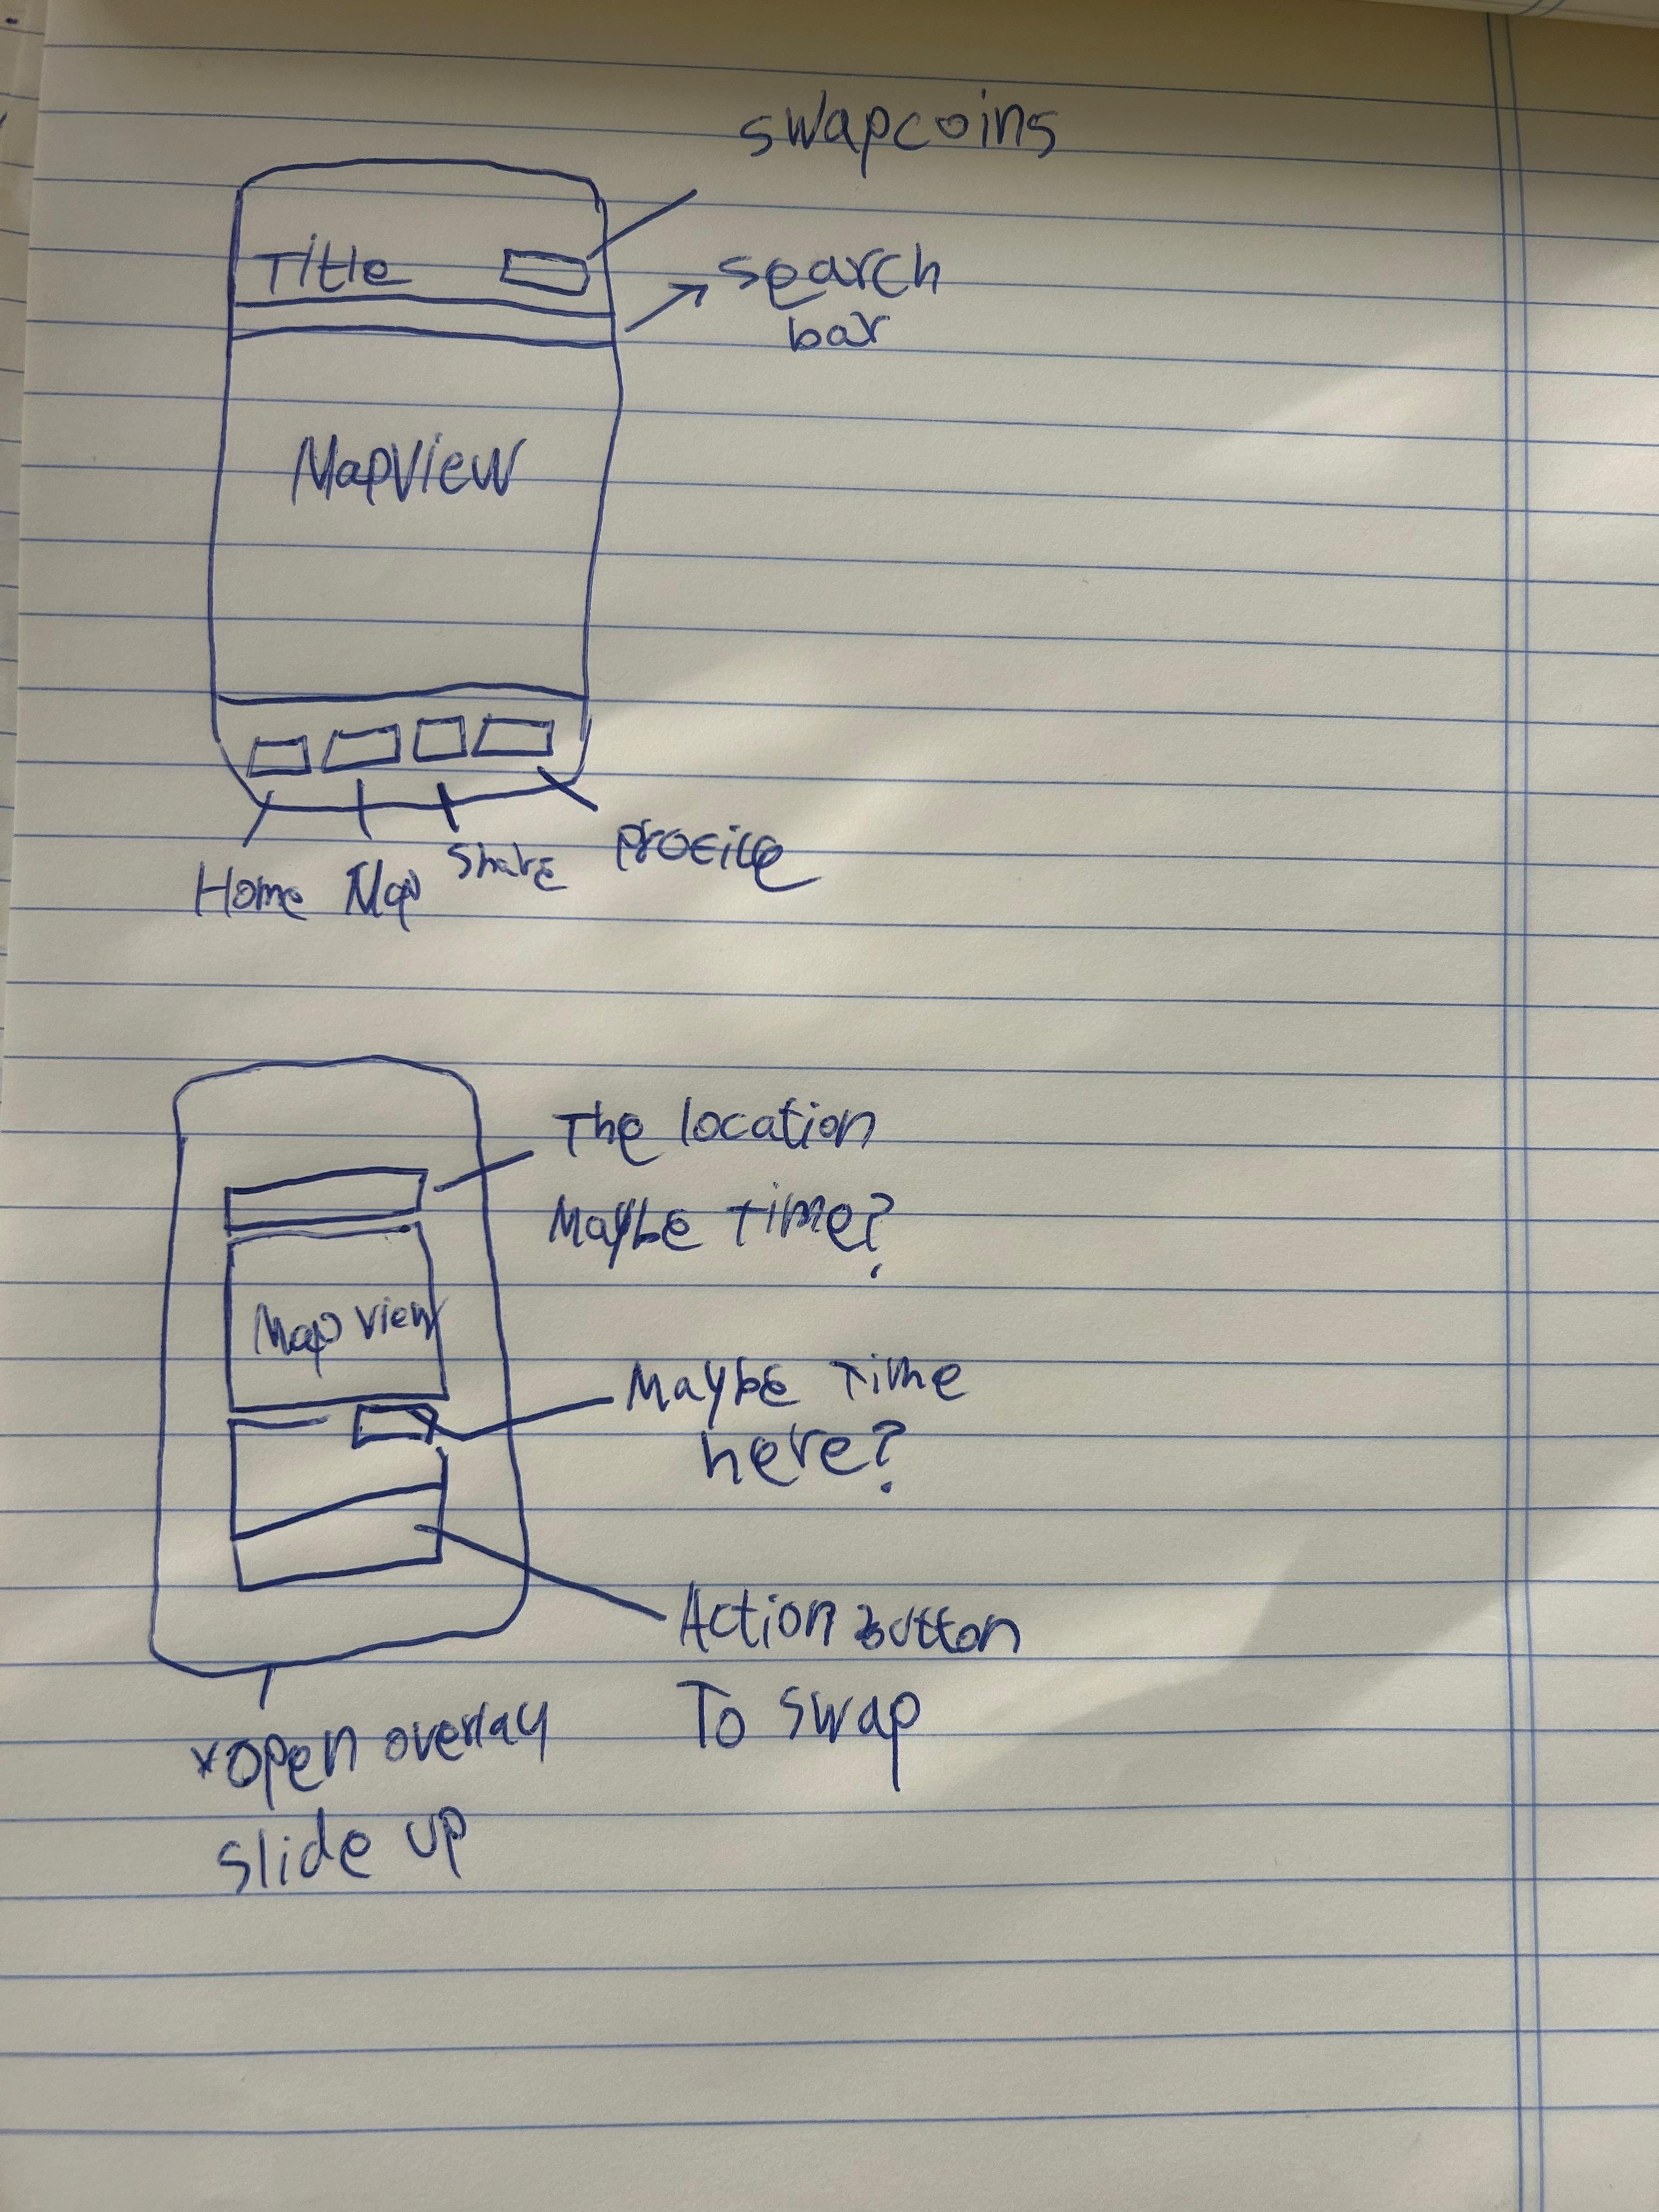 swapcoins
Title
search
bar
MapView
Home Map Share Profile
The location
Maybe Time?
Map View
Maybe Time
here?
Action Button
To swap
*open overlay
slide up